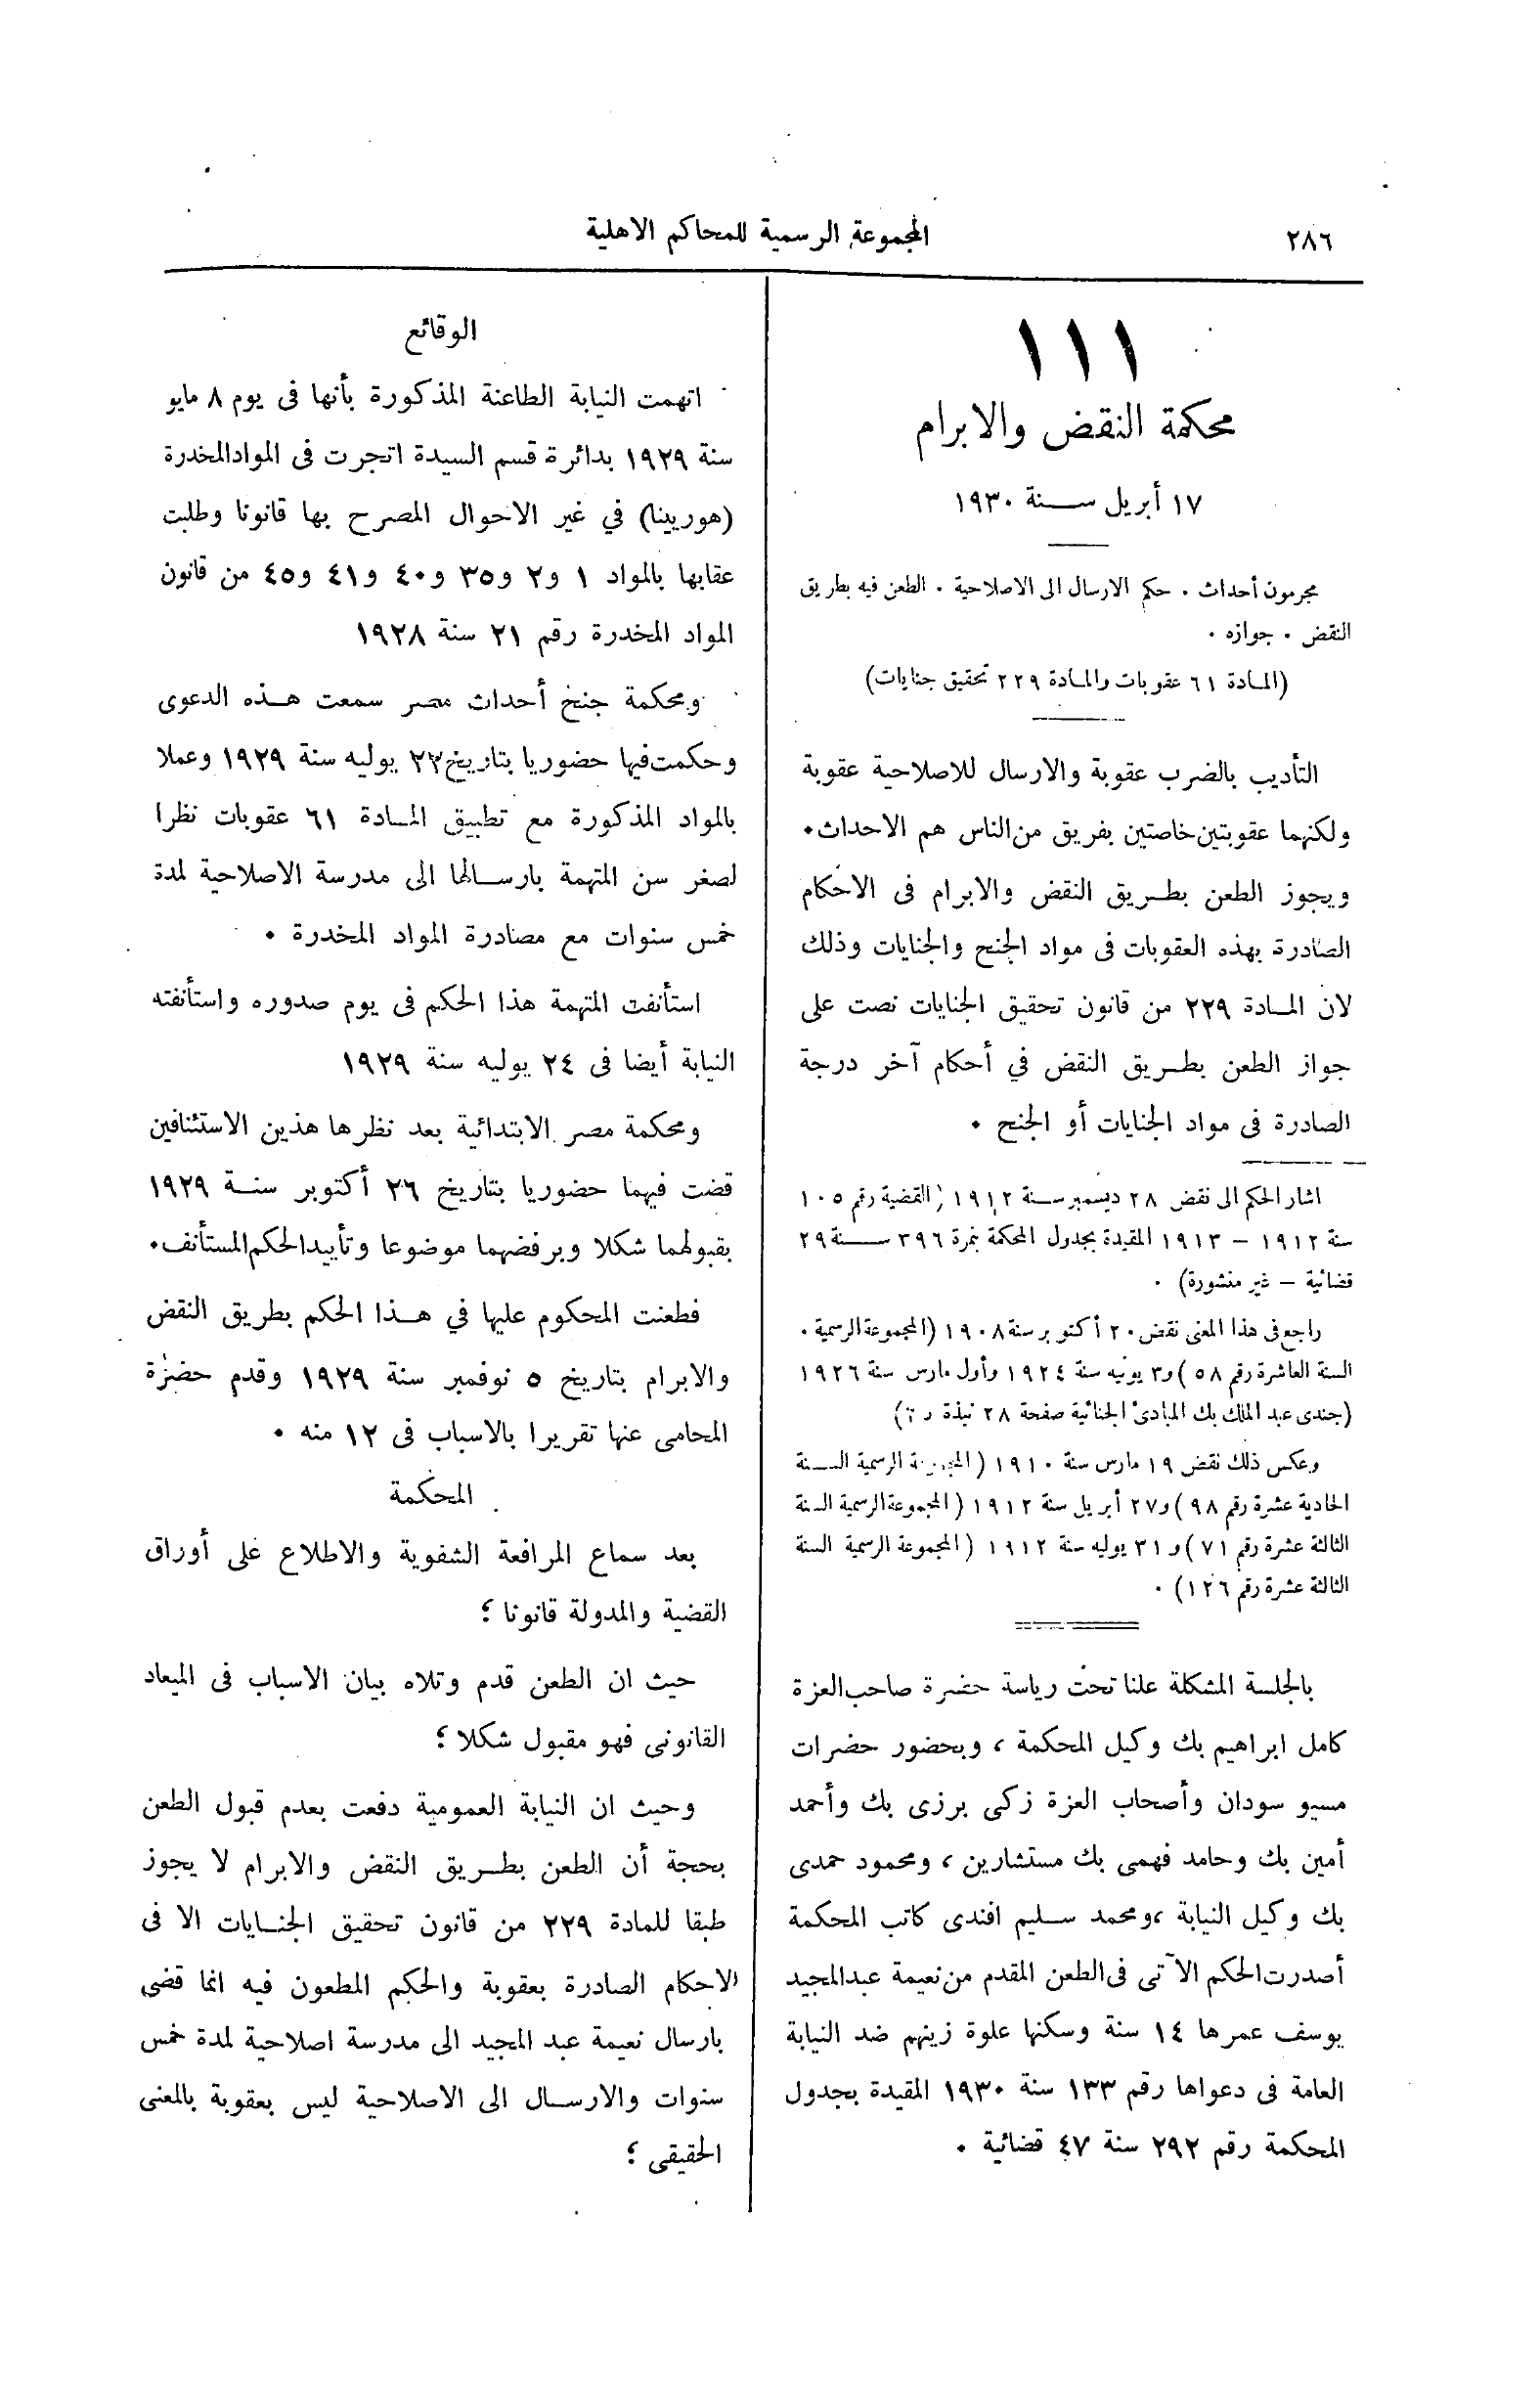 ٢٨٦
المجموعة الرسمية للمحاكم الاهلية
١١١
محكمة النقض والابرام
١٧ أبريل سنة ١٩٣٠
مجرمون أحداث . حكم الارسال الى الاصلاحية . الطعن فيه بطريق
النقض . جوازه .
(المادة ٦١ عقوبات والمادة ٢٢٩ تحقيق جنايات)
التأديب بالضرب عقوبة والارسال للاصلاحية عقوبة
ولكنهما عقوبتين خاصتين بفريق من الناس هم الاحداث .
ويجوز الطعن بطريق النقض والابرام فى الاحكام
الصادرة بهذه العقوبات فى مواد الجنح والجنايات وذلك
لان المادة ٢٢٩ من قانون تحقيق الجنايات نصت على
جواز الطعن بطريق النقض في أحكام آخر درجة
الصادرة فى مواد الجنايات أو الجنح .
اشار الحكم الى نقض ٢٨ ديسمبر سنة ١٩١٢ (القضية رقم ١٠٥
سنة ١٩١٢ – ١٩١٣ المقيدة بجدول المحكمة بنمرة ٣٩٦ سنة ٢٩
قضائية – غير منشورة) .
راجع فى هذا المعنى نقض ٢٠ أكتوبر سنة ١٩٠٨ (المجموعة الرسمية .
السنة العاشرة رقم ٥٨) و٣ يونيه سنة ١٩٢٤ وأول مارس سنة ١٩٢٦
(جندى عبد الملك بك المبادئ الجنائية صفحة ٢٨ نبذة
وعكس ذلك نقض ١٩ مارس سنة ١٩١٠ (المجموعة الرسمية السنة
الحادية عشرة رقم ٩٨) و٢٧ أبريل سنة ١٩١٢ (المجموعة الرسمية السنة
الثالثة عشرة رقم ٧١) و٣١ يوليه سنة ١٩١٢ (المجموعة الرسمية السنة
الثالثة عشرة رقم ١٢٦) .
بالجلسة المشكلة علنا تحت رياسة حضرة صاحب العزة
كامل ابراهيم بك وكيل المحكمة ، وبحضور حضرات
مسيو سودان وأصحاب العزة زكى برزى بك وأحمد
أمين بك وحامد فهمى بك مستشارين ، ومحمود حمدى
بك وكيل النيابة ، ومحمد سليم افندى كاتب المحكمة
أصدرت الحكم الآتى فى الطعن المقدم من نعيمة عبد المجيد
يوسف عمرها ١٤ سنة وسكنها علوة زينهم ضد النيابة
العامة فى دعواها رقم ١٣٣ سنة ١٩٣٠ المقيدة بجدول
المحكمة رقم ٢٩٢ سنة ٤٧ قضائية .
الوقائع
اتهمت النيابة الطاعنة المذكورة بأنها فى يوم ٨ مايو
سنة ١٩٢٩ بدائرة قسم السيدة اتجرت فى المواد المخدرة
(هوريينا) في غير الاحوال المصرح بها قانونا وطلبت
عقابها بالمواد ١ و٢ و٣٥ و٤٠ و٤١ و٤٥ من قانون
المواد المخدرة رقم ٢١ سنة ١٩٢٨
ومحكمة جنح أحداث مصر سمعت هذه الدعوى
وحكمت فيها حضوريا بتاريخ ٢٢ يوليه سنة ١٩٢٩ وعملا
بالمواد المذكورة مع تطبيق المادة ٦١ عقوبات نظرا
لصغر سن المتهمة بارسالها الى مدرسة الاصلاحية لمدة
خمس سنوات مع مصادرة المواد المخدرة .
استأنفت المتهمة هذا الحكم فى يوم صدوره واستأنفته
النيابة أيضا فى ٢٤ يوليه سنة ١٩٢٩
ومحكمة مصر الابتدائية بعد نظرها هذين الاستئنافين
قضت فيهما حضوريا بتاريخ ٢٦ أكتوبر سنة ١٩٢٩
بقبولهما شكلا وبرفضهما موضوعا وتأييد الحكم المستأنف .
فطعنت المحكوم عليها في هذا الحكم بطريق النقض
والابرام بتاريخ ٥ نوفمبر سنة ١٩٢٩ وقدم حضرة
المحامى عنها تقريرا بالاسباب فى ١٢ منه .
المحكمة
بعد سماع المرافعة الشفوية والاطلاع على أوراق
القضية والمدولة قانونا ؛
حيث ان الطعن قدم وتلاه بيان الاسباب فى الميعاد
القانونى فهو مقبول شكلا ؛
وحيث ان النيابة العمومية دفعت بعدم قبول الطعن
بحجة أن الطعن بطريق النقض والابرام لا يجوز
طبقا للمادة ٢٢٩ من قانون تحقيق الجنايات الا فى
الاحكام الصادرة بعقوبة والحكم المطعون فيه انما قضى
بارسال نعيمة عبد المجيد الى مدرسة اصلاحية لمدة خمس
سنوات والارسال الى الاصلاحية ليس بعقوبة بالمعنى
الحقيقى ؛